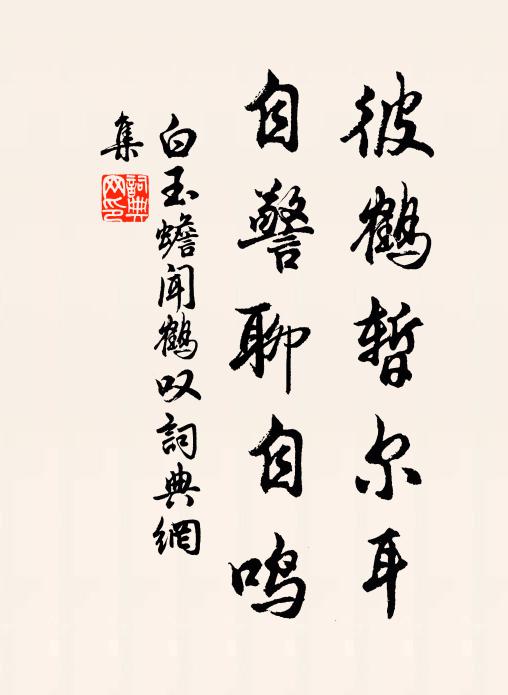 彼鹤暂尔耳
自警聊自鸣
白玉蟾闻鹤叹词典網
集
詞典
网印